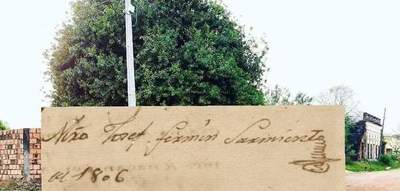 Mro Josef fermin Sarmiento
año 1806